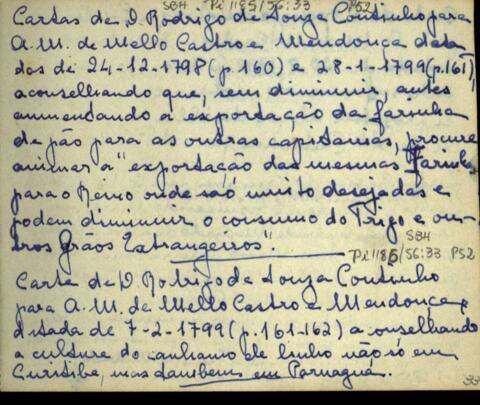 SBH Pi 185/56:33 P52
Cartas de D. Rodrigo de Souza Coutinho para
A. M. de Mello Castro e Mendonça data
das de 24-12-1798 (p. 160) e 28-1-1799 (p. 161)
aconselhando que, sem diminuir, antes
aumentando a exportação da farinha
de pão para as outras capitanias, procure
animar a "exportação das mesmas Farinhas
para o Reino onde são muito desejadas e
podem diminuir o consumo do Trigo e ou-
tros Grãos Estrangeiros".
SBH
Pi 185/56:33 P52
Carta de D. Rodrigo de Souza Coutinho
para A. M. de Mello Castro e Mendonça,
datada de 7-2-1799 (p. 161-162) aconselhando
a cultura do canhamo de linho não só em
Curitiba, mas tambem em Parnaguá.